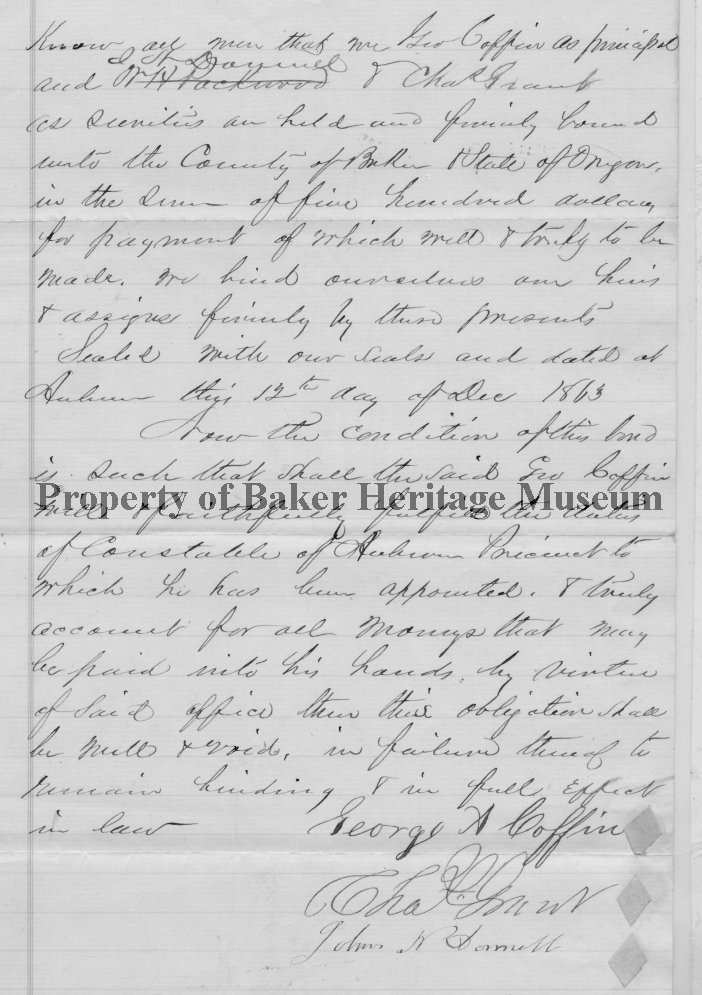 Know all men that we Geo Coffin as principal
J N Donnell
and W H Packwood & Chas Grant
as surities are held and firmly bound
unto the County of Baker & State of Oregon,
in the sum of five hundred dollars
for payment of which well & truly to be
made. we bind ourselves our heirs
& assigns firmly by these presents
Sealed with our seals and dated at
Auburn this 12th day of Dec 1863
Now the condition of this bond
is such that shall the said Geo Coffin
well & faithfully fulfill the duties
Property of Baker Heritage Museum
of Constable of Auburn Precinct to
which he has been appointed. & truly
account for all moneys that may
be paid into his hands, by virtue
of said office then this obligation shall
be null & void, in failure thereof to
remain binding & in full effect
in law
George A Coffin
Chas Grant
John N Donnell